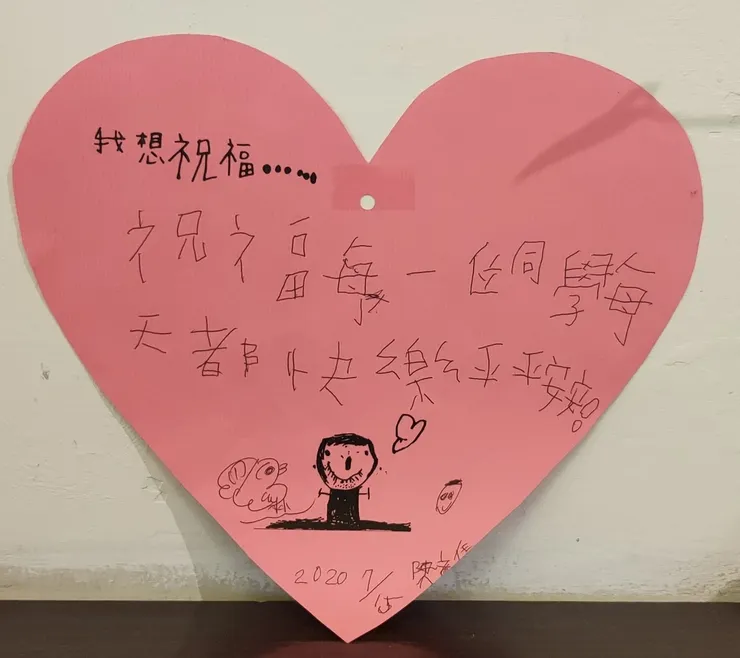 我想祝福……
祝福每一位同學每
天都快樂平平安安!
2020 7/15 陳